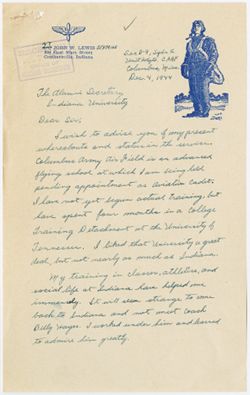 JOHN W. LEWIS
Connersville, Indiana
Sec B-4, Sqdn G
Columbus, Miss.
Dec. 4, 1944
The Alumni Secretary
Indiana University
Dear Sir:
I wish to advise you of my present
whereabouts and status in the service.
Columbus Army Air Field is an advanced
flying school at which I am being held
pending appointment as Aviation Cadet.
I have not yet begun actual training, but
have spent four months in a College
Training Detachment at the University of
Tennessee. I liked that University a great
deal, but not nearly as much as Indiana.
My training in classes, athletics, and
social life at Indiana have helped me
immensely. It will seem strange to come
back to Indiana and not meet Coach
Billy Hayes. I worked under him and learned
to admire him greatly.